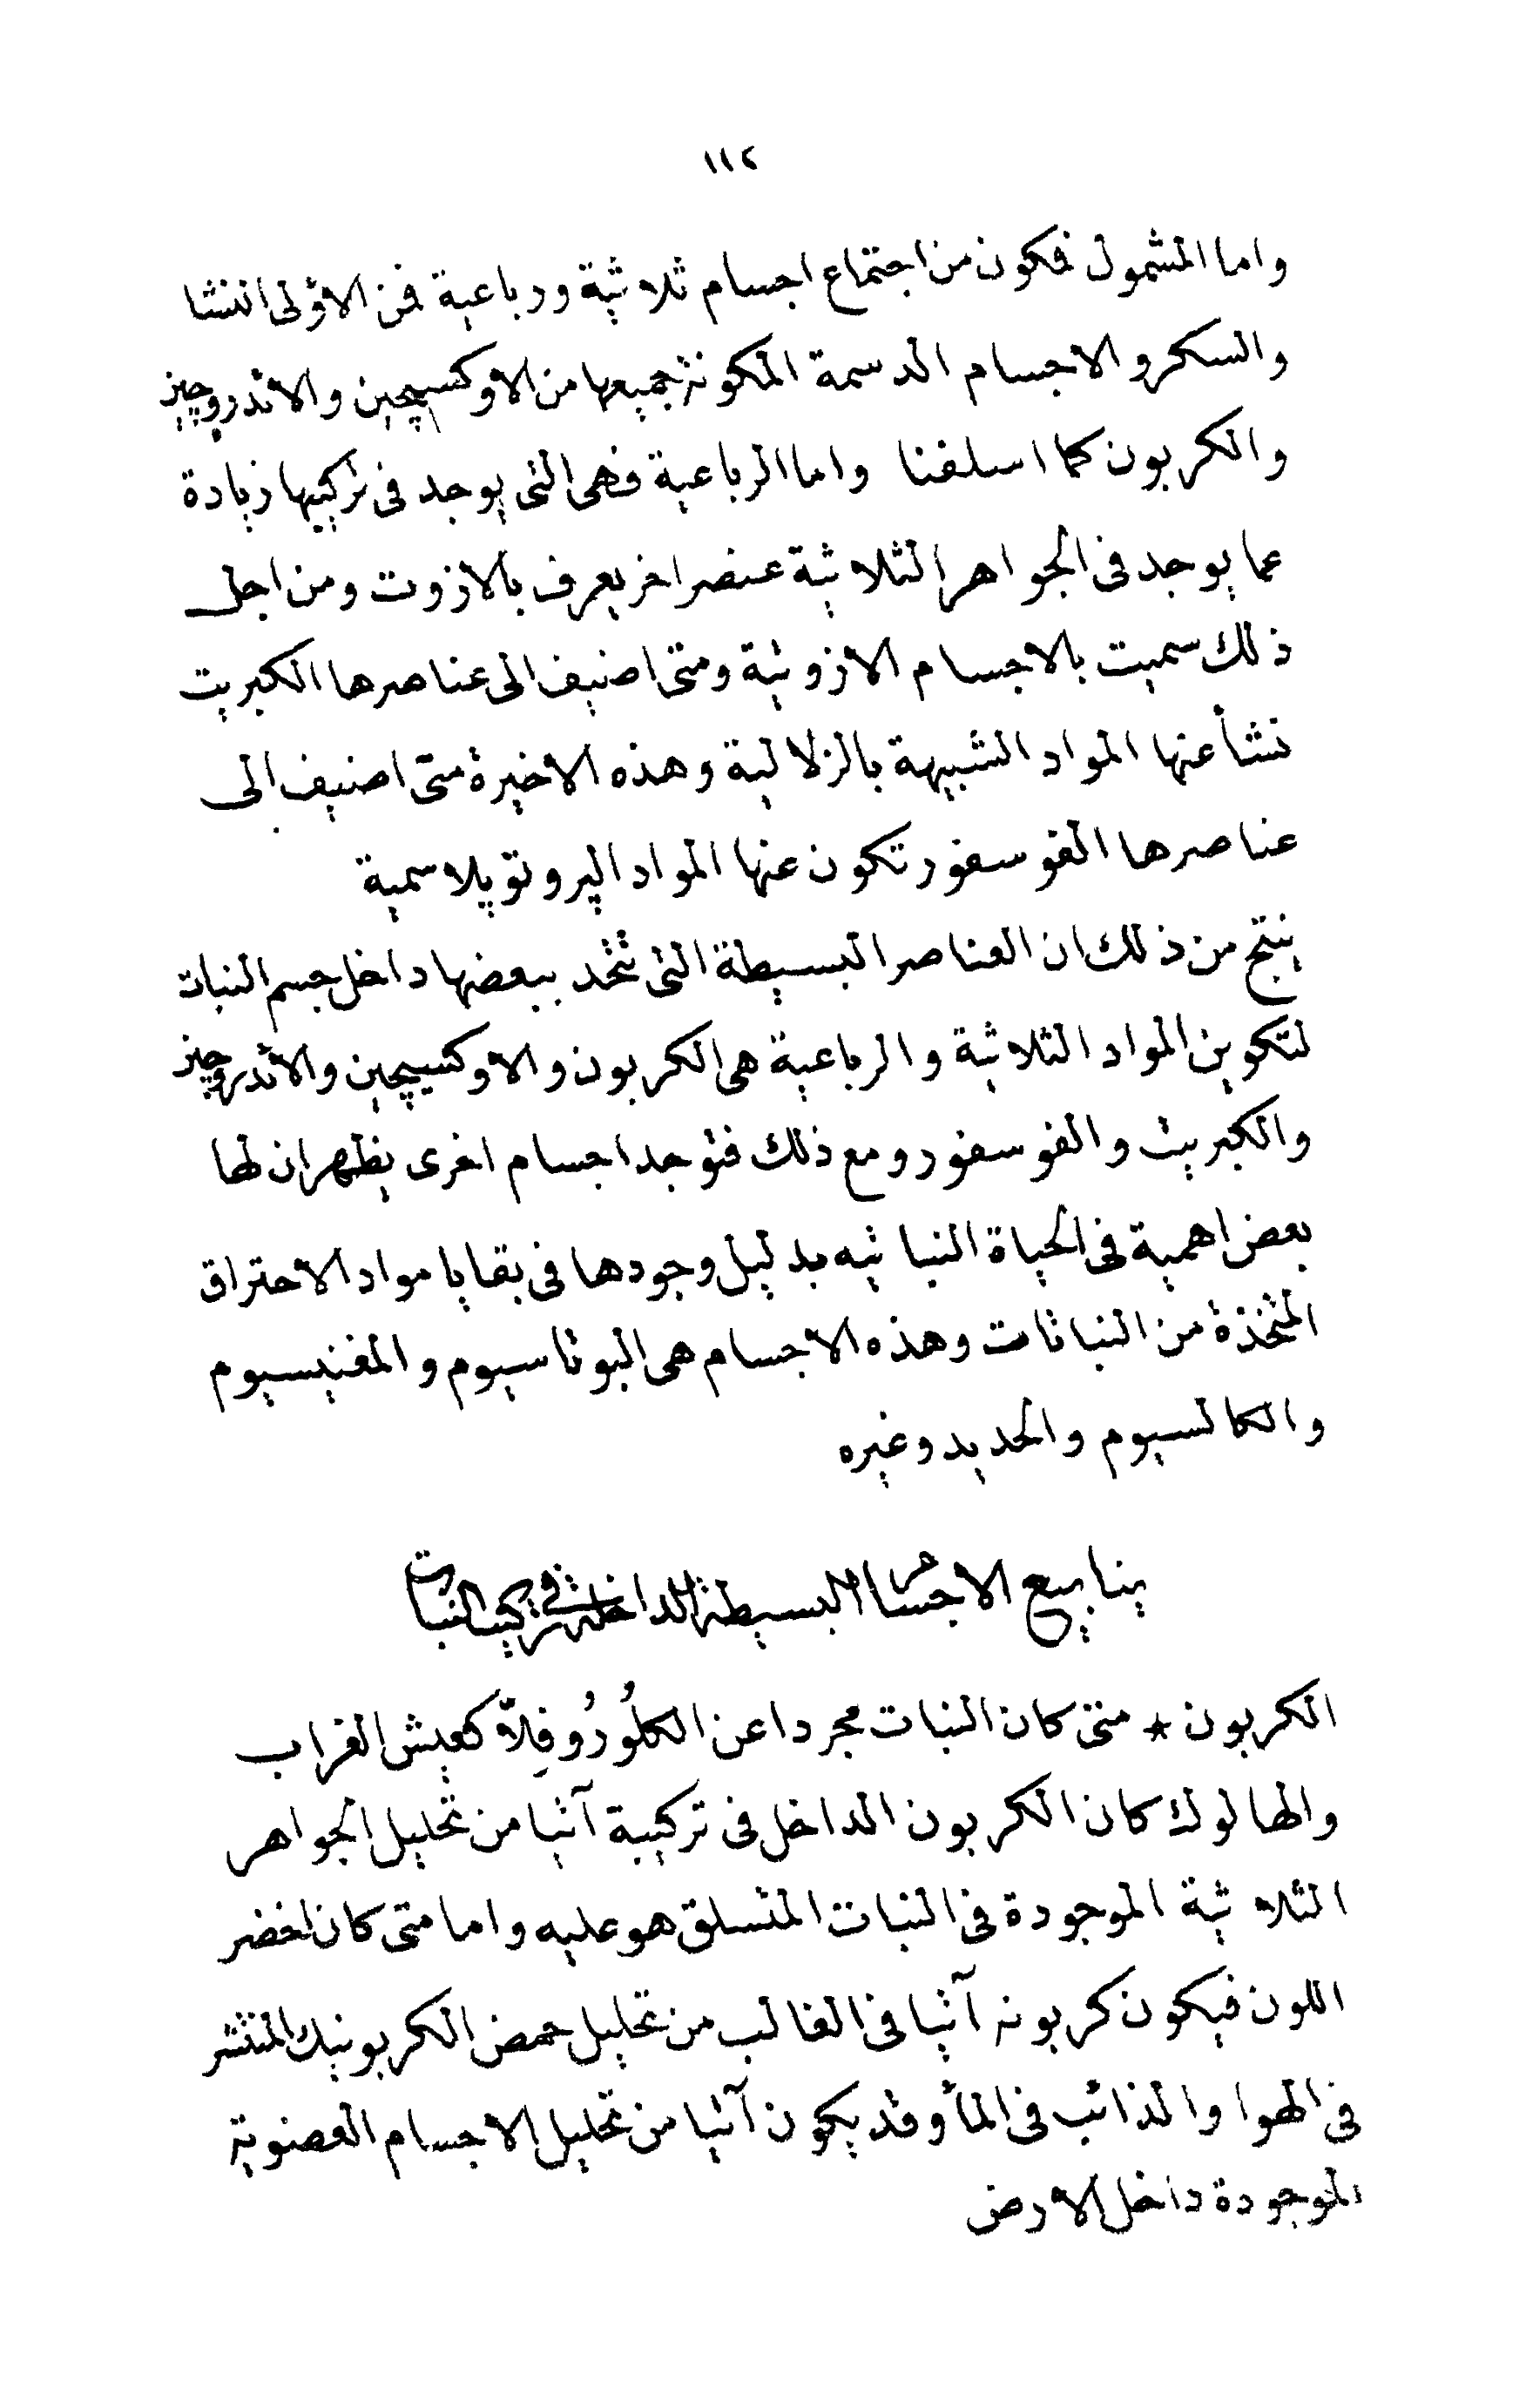 ١١٢
واما المشمول فكون من اجتماع اجسام ثلاثية ورباعية فمن الاولى النشا
والسكر والاجسام الدسمة المكونة جميعها من الاوكسيجين والاندروجين
والكربون كما اسلفنا واما الرباعية فهى التى يوجد فى تركيبها زيادة
عما يوجد فى الجواهر الثلاثية عنصر اخر يعرف بالازوت ومن اجل
ذلك سميت بالاجسام الازوتية ومتى اضيف الى عناصرها الكبريت
نشأ عنها المواد الشبيهة بالزلالية وهذه الاخيرة متى اضيف الى
عناصرها الفوسفور تكون عنها المواد البروتوبلاسمية
ينتج من ذلك ان العناصر البسيطة التى تتحد ببعضها داخل جسم النبات
لتكوين المواد الثلاثية والرباعية هى الكربون والاوكسيجين والاندروجين
والكبريت والفوسفور ومع ذلك فتوجد اجسام اخرى يظهر ان لها
بعض اهمية فى الحياة النباتيه بدليل وجودها فى بقايا مواد الاحتراق
المتخذة من النباتات وهذه الاجسام هى البوتاسيوم والمغنيسيوم
والكالسيوم والحديد وغيره
ينابيع الاجسام البسيطة الداخلة فى تركيب النبات
الكربون * متى كان النبات مجردا عن الكلُورُوفِلاّ كعيش الغراب
والهالوك كان الكربون الداخل فى تركيبة آتيا من تحليل الجواهر
الثلاثية الموجودة فى النبات المتسلق هو عليه واما متى كان اخضر
اللون فيكون كربونه آتيا فى الغالب من تحليل حمض الكربونيك المنتشر
فى الهوا والذائب فى المأ وقد يكون آتيا من تحليل الاجسام العضوية
الموجودة داخل الارض